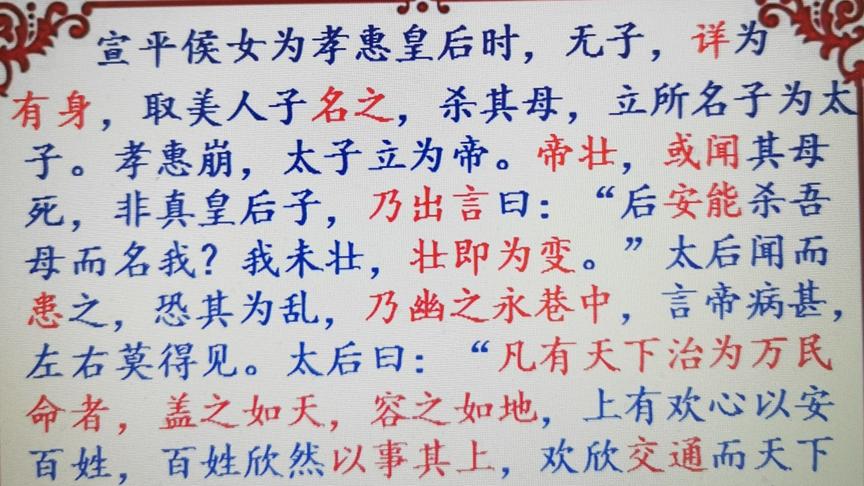 宣平侯女为孝惠皇后时，无子，详为
有身，取美人子名之，杀其母，立所名子为太
子。孝惠崩，太子立为帝。帝壮，或闻其母
死，非真皇后子，乃出言曰：“后安能杀吾
母而名我？我未壮，壮即为变。”太后闻而
患之，恐其为乱，乃幽之永巷中，言帝病甚，
左右莫得见。太后曰：“凡有天下治为万民
命者，盖之如天，容之如地，上有欢心以安
百姓，百姓欣然以事其上，欢欣交通而天下